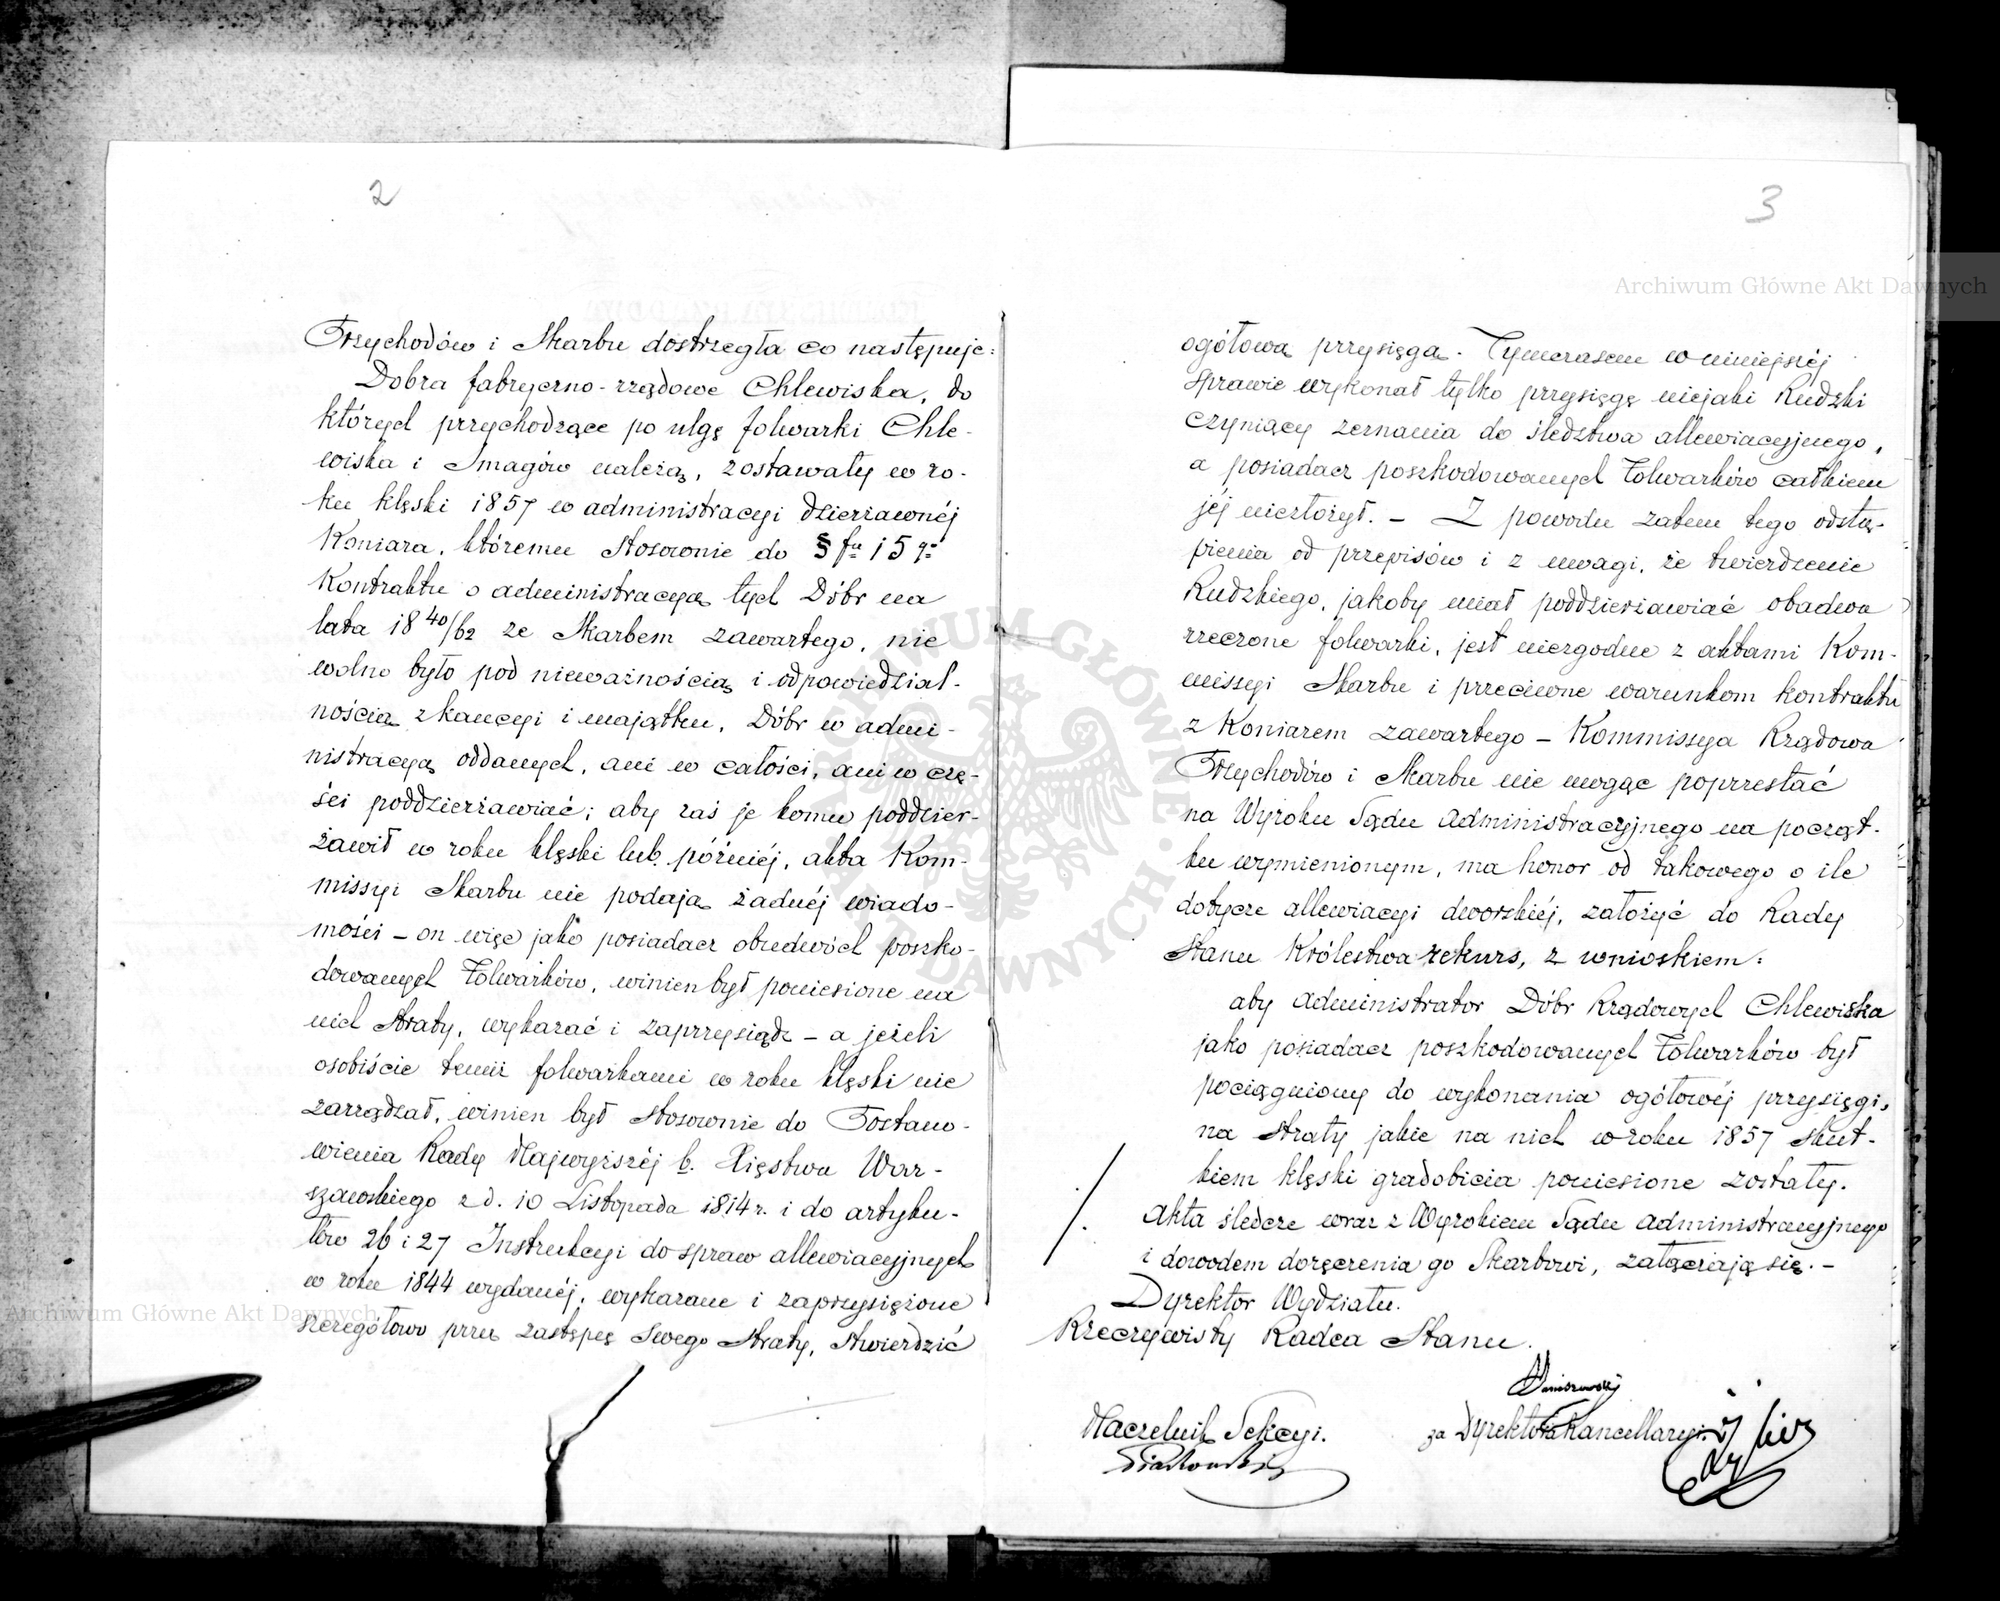 2
Przychodów i Skarbu dostrzegła co następuje:
Dobra fabryczno-rządowe Chlewiska, do
których przychodzące po ulgę folwarki Chle-
wiska i Smagów należą, zostawały w ro-
ku klęski 1857 w administracyi dzierżawnéj
Koniara, któremu stosownie do § fu 15 go
Kontraktu o administracyą tych Dóbr na
lata 18 40/62 ze Skarbem zawartego, nie
wolno było pod nieważnością i odpowiedzial-
nością z kaucyi i majątku, Dóbr w admi-
nistracyą oddanych, ani w całości, ani w czę-
ści poddzierżawiać; aby zaś je komu poddzier-
żawił w roku klęski lub późniéj, akta Kom-
missyi Skarbu nie podają żadnéj wiado-
mości – on więc jako posiadacz obudwóch poszko-
dowanych Folwarków, winien był poniesione na
nich straty, wykazać i zaprzysiądz – a jeżeli
osobiście temi folwarkami w roku klęski nie
zarządzał, winien był stosownie do Postano-
wienia Rady Najwyższéj b. Xięstwa War-
szawskiego z d. 10 Listopada 1814 r. i do artyku-
łów 26 i 27 Instrukcyi do spraw allewiacyjnych
w roku 1844 wydanéj, wykazane i zaprzysiężone
szczegółowo przez zastępcę swego straty, stwierdzić
3
ogółową przysięgą. Tymczasem w niniejszéj
sprawie wykonał tylko przysięgę niejaki Rudzki
czyniący zeznania do śledztwa allewiacyjnego,
a posiadacz poszkodowanych Folwarków całkiem
jéj niezłożył. – Z powodu zatem tego odstą-
pienia od przepisów i z uwagi, że twierdzenie
Rudzkiego, jakoby miał poddzierżawiać obadwa
rzeczone folwarki, jest niezgodne z aktami Kom-
missyi Skarbu i przeciwne warunkom kontraktu
z Koniarem zawartego – Kommissya Rządowa
Przychodów i Skarbu nie mogąc poprzestać
na Wyroku Sądu Administracyjnego na począt-
ku wymienionym, ma honor od takowego o ile
dotycze allewiacyi dworskiéj, założyć do Rady
Stanu Królestwa rekurs, z wnioskiem:
aby administrator Dóbr Rządowych Chlewiska
jako posiadacz poszkodowanych Folwarków był
pociągniony do wykonania ogółowéj przysięgi,
na straty jakie na nich w roku 1857 skut-
kiem klęski gradobicia poniesione zostały.
Akta śledcze wraz z Wyrokiem Sądu Administracyjnego
i dowodem doręczenia go Skarbowi, załączają się. –
Dyrektor Wydziału.
Rzeczywisty Radca Stanu.
Naczelnik Sekcyi.
za Dyrektora Kancellaryi.
Archiwum Główne Akt Dawnych
Archiwum Główne Akt Dawnych
ARCHIWUM GŁÓWNE AKT DAWNYCH